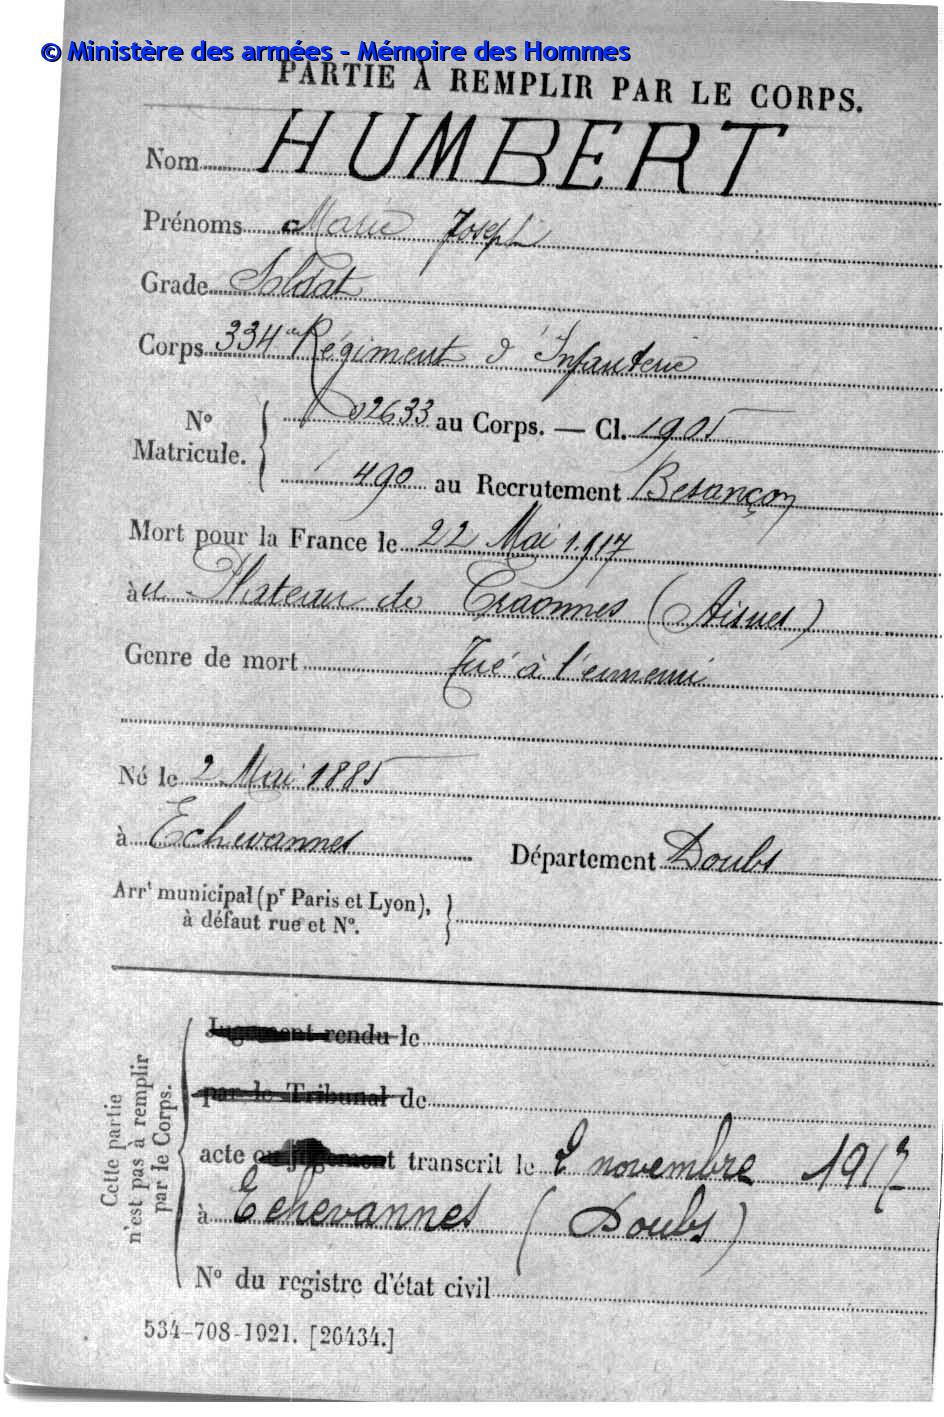 © Ministère des armées - Mémoire des Hommes
PARTIE À REMPLIR PAR LE CORPS.
Nom HUMBERT
Prénoms Marie Joseph
Grade Soldat
Corps 334e Régiment d'Infanterie
No Matricule. { 02633 au Corps. — Cl. 1905
490 au Recrutement Besançon
Mort pour la France le 22 Mai 1917
àu Plateau de Craonnes (Aisnes)
Genre de mort Tué à l'ennemi
Né le 2 Mai 1885
à Echevannes Département Doubs
Arrt municipal (pr Paris et Lyon),
à défaut rue et No.
Cette partie
n'est pas à remplir
par le Corps.
Jugement rendu le
par le Tribunal de
acte ou jugement transcrit le 2 novembre 1917
à Echevannes (Doubs)
No du registre d'état civil
534-708-1921. [26434.]